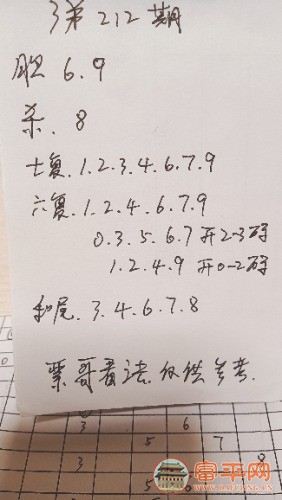 3第212期
胆 6.9
杀. 8
七复.1.2.3.4.6.7.9
六复.1.2.4.6.7.9
0.3.5.6.7开2-3码
1.2.4.9开0-2码
和尾.3.4.6.7.8
栗哥看法.仅供参考.
3 6
5 7
3 8
5 6
富平网